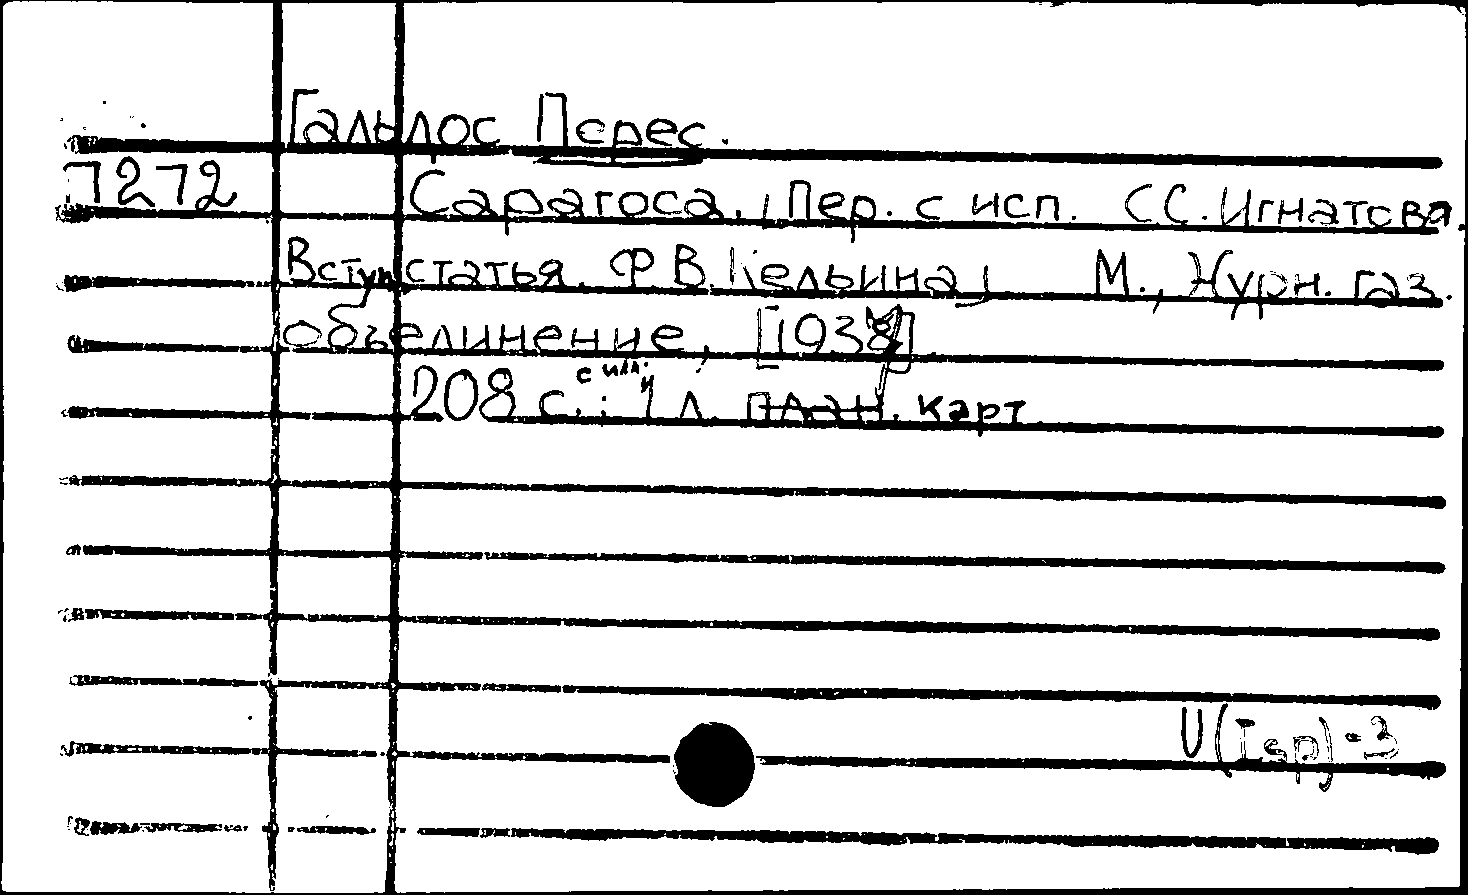 Гальдос Перес.
7272 Сарагоса. /Пер. с исп. С С. Игнатова.
Вступ. статья. Ф. В. Кельина/ М., Журн. газ.
объединение, [1938]
208 с. с илл. и 1 л. план. карт
U(Isp)-3